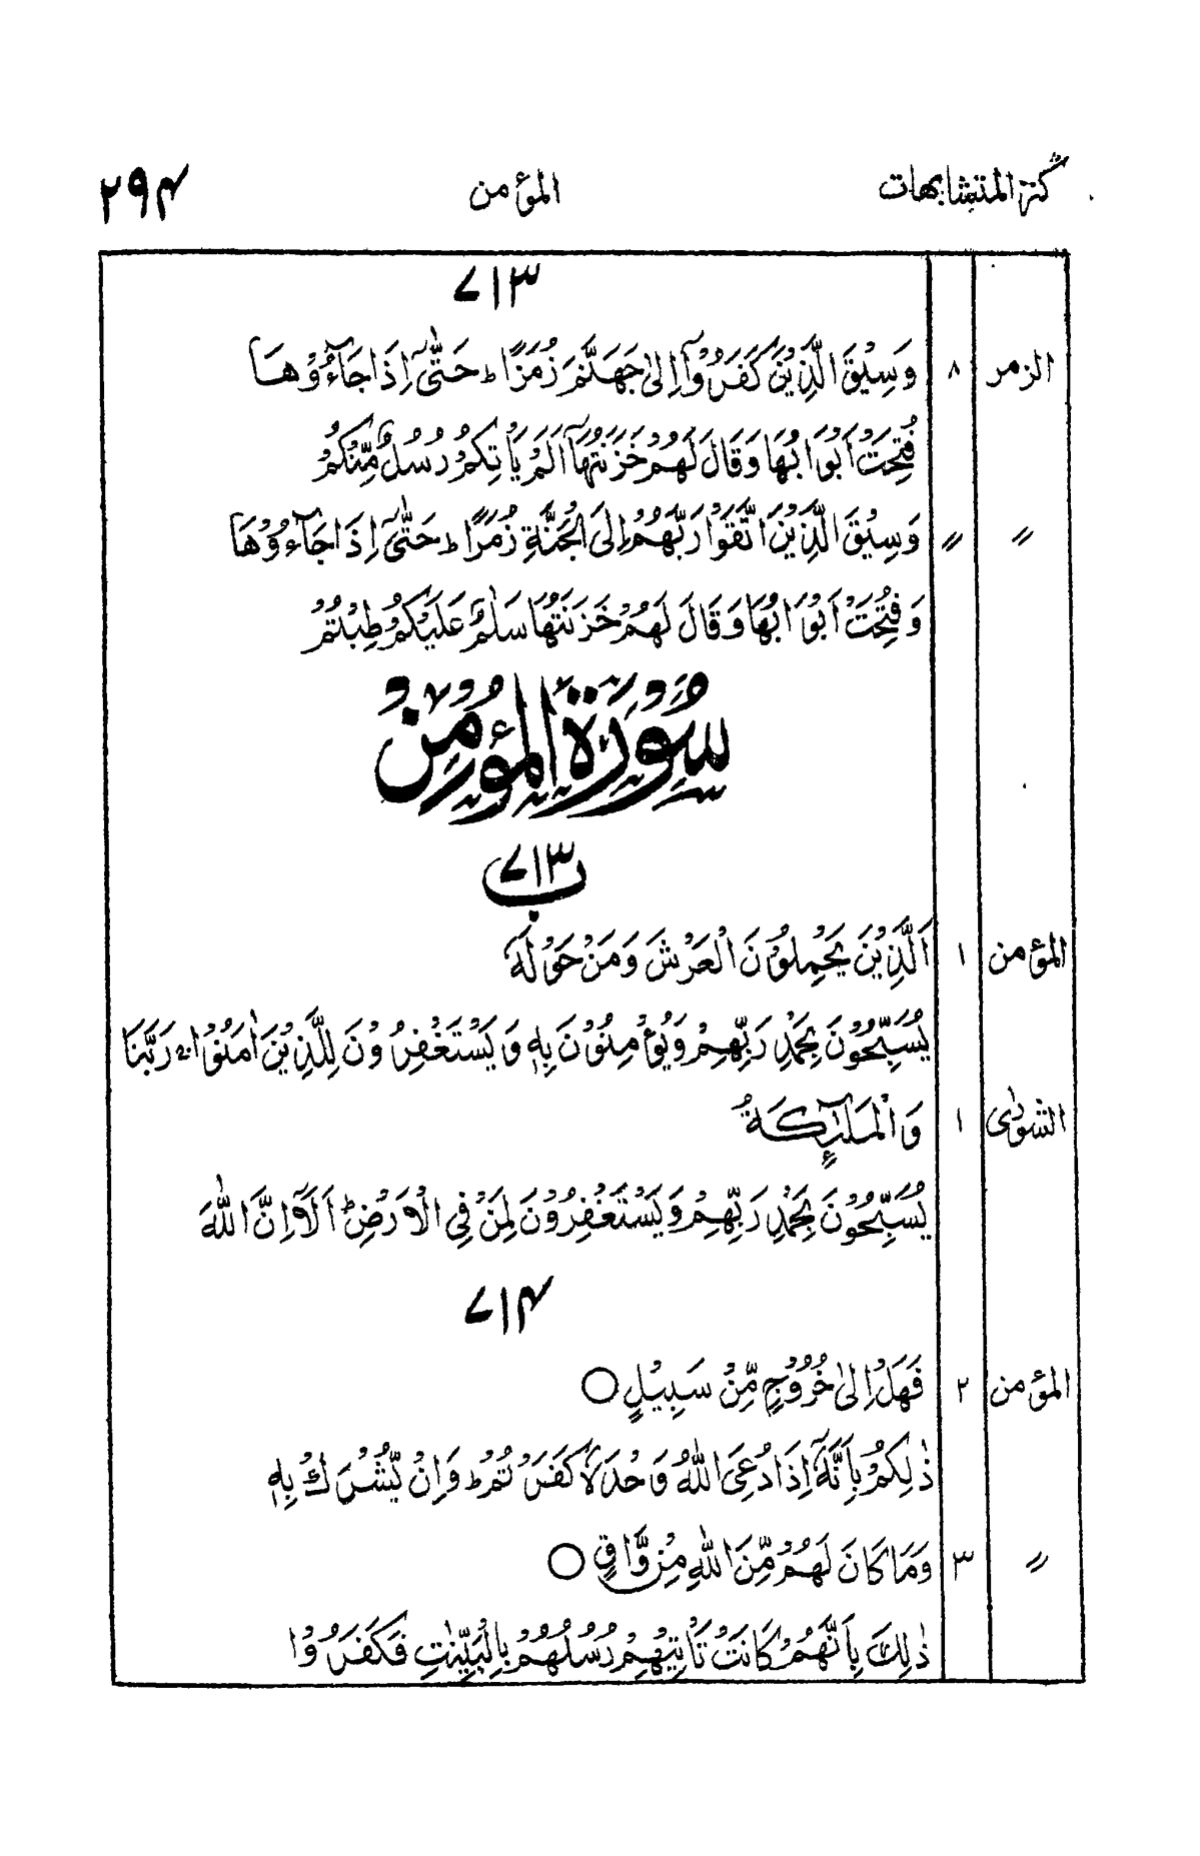 کنز المتشابهات المؤمن ۲۹۴
۷۱۳
الزمر ۸ وَسِيْقَ الَّذِيْنَ كَفَرُوْٓا اِلٰى جَهَنَّمَ زُمَرًا ؕ حَتّٰٓى اِذَا جَآءُوْهَا
فُتِحَتْ اَبْوَابُهَا وَقَالَ لَهُمْ خَزَنَتُهَآ اَلَمْ يَاْتِكُمْ رُسُلٌ مِّنْكُمْ
〃 〃 وَسِيْقَ الَّذِيْنَ اتَّقَوْا رَبَّهُمْ اِلَى الْجَنَّةِ زُمَرًا ؕ حَتّٰٓى اِذَا جَآءُوْهَا
وَفُتِحَتْ اَبْوَابُهَا وَقَالَ لَهُمْ خَزَنَتُهَا سَلٰمٌ عَلَيْكُمْ طِبْتُمْ
سُوْرَةُ الْمُؤْمِنْ
۷۱۳ ب
المؤمن ۱ اَلَّذِيْنَ يَحْمِلُوْنَ الْعَرْشَ وَمَنْ حَوْلَهٗ
يُسَبِّحُوْنَ بِحَمْدِ رَبِّهِمْ وَيُؤْمِنُوْنَ بِهٖ وَيَسْتَغْفِرُوْنَ لِلَّذِيْنَ اٰمَنُوْا ۚ رَبَّنَا
الشورٰى ۱ وَالْمَلٰٓئِكَةُ
يُسَبِّحُوْنَ بِحَمْدِ رَبِّهِمْ وَيَسْتَغْفِرُوْنَ لِمَنْ فِي الْاَرْضِ ؕ اَلَآ اِنَّ اللّٰهَ
۷۱۴
المؤمن ۲ فَهَلْ اِلٰى خُرُوْجٍ مِّنْ سَبِيْلٍ ○
ذٰلِكُمْ بِاَنَّهٗٓ اِذَا دُعِيَ اللّٰهُ وَحْدَهٗ كَفَرْتُمْ ؕ وَاِنْ يُّشْرَكْ بِهٖ
〃 ۳ وَمَا كَانَ لَهُمْ مِّنَ اللّٰهِ مِنْ وَّاقٍ ○
ذٰلِكَ بِاَنَّهُمْ كَانَتْ تَّاْتِيْهِمْ رُسُلُهُمْ بِالْبَيِّنٰتِ فَكَفَرُوْا